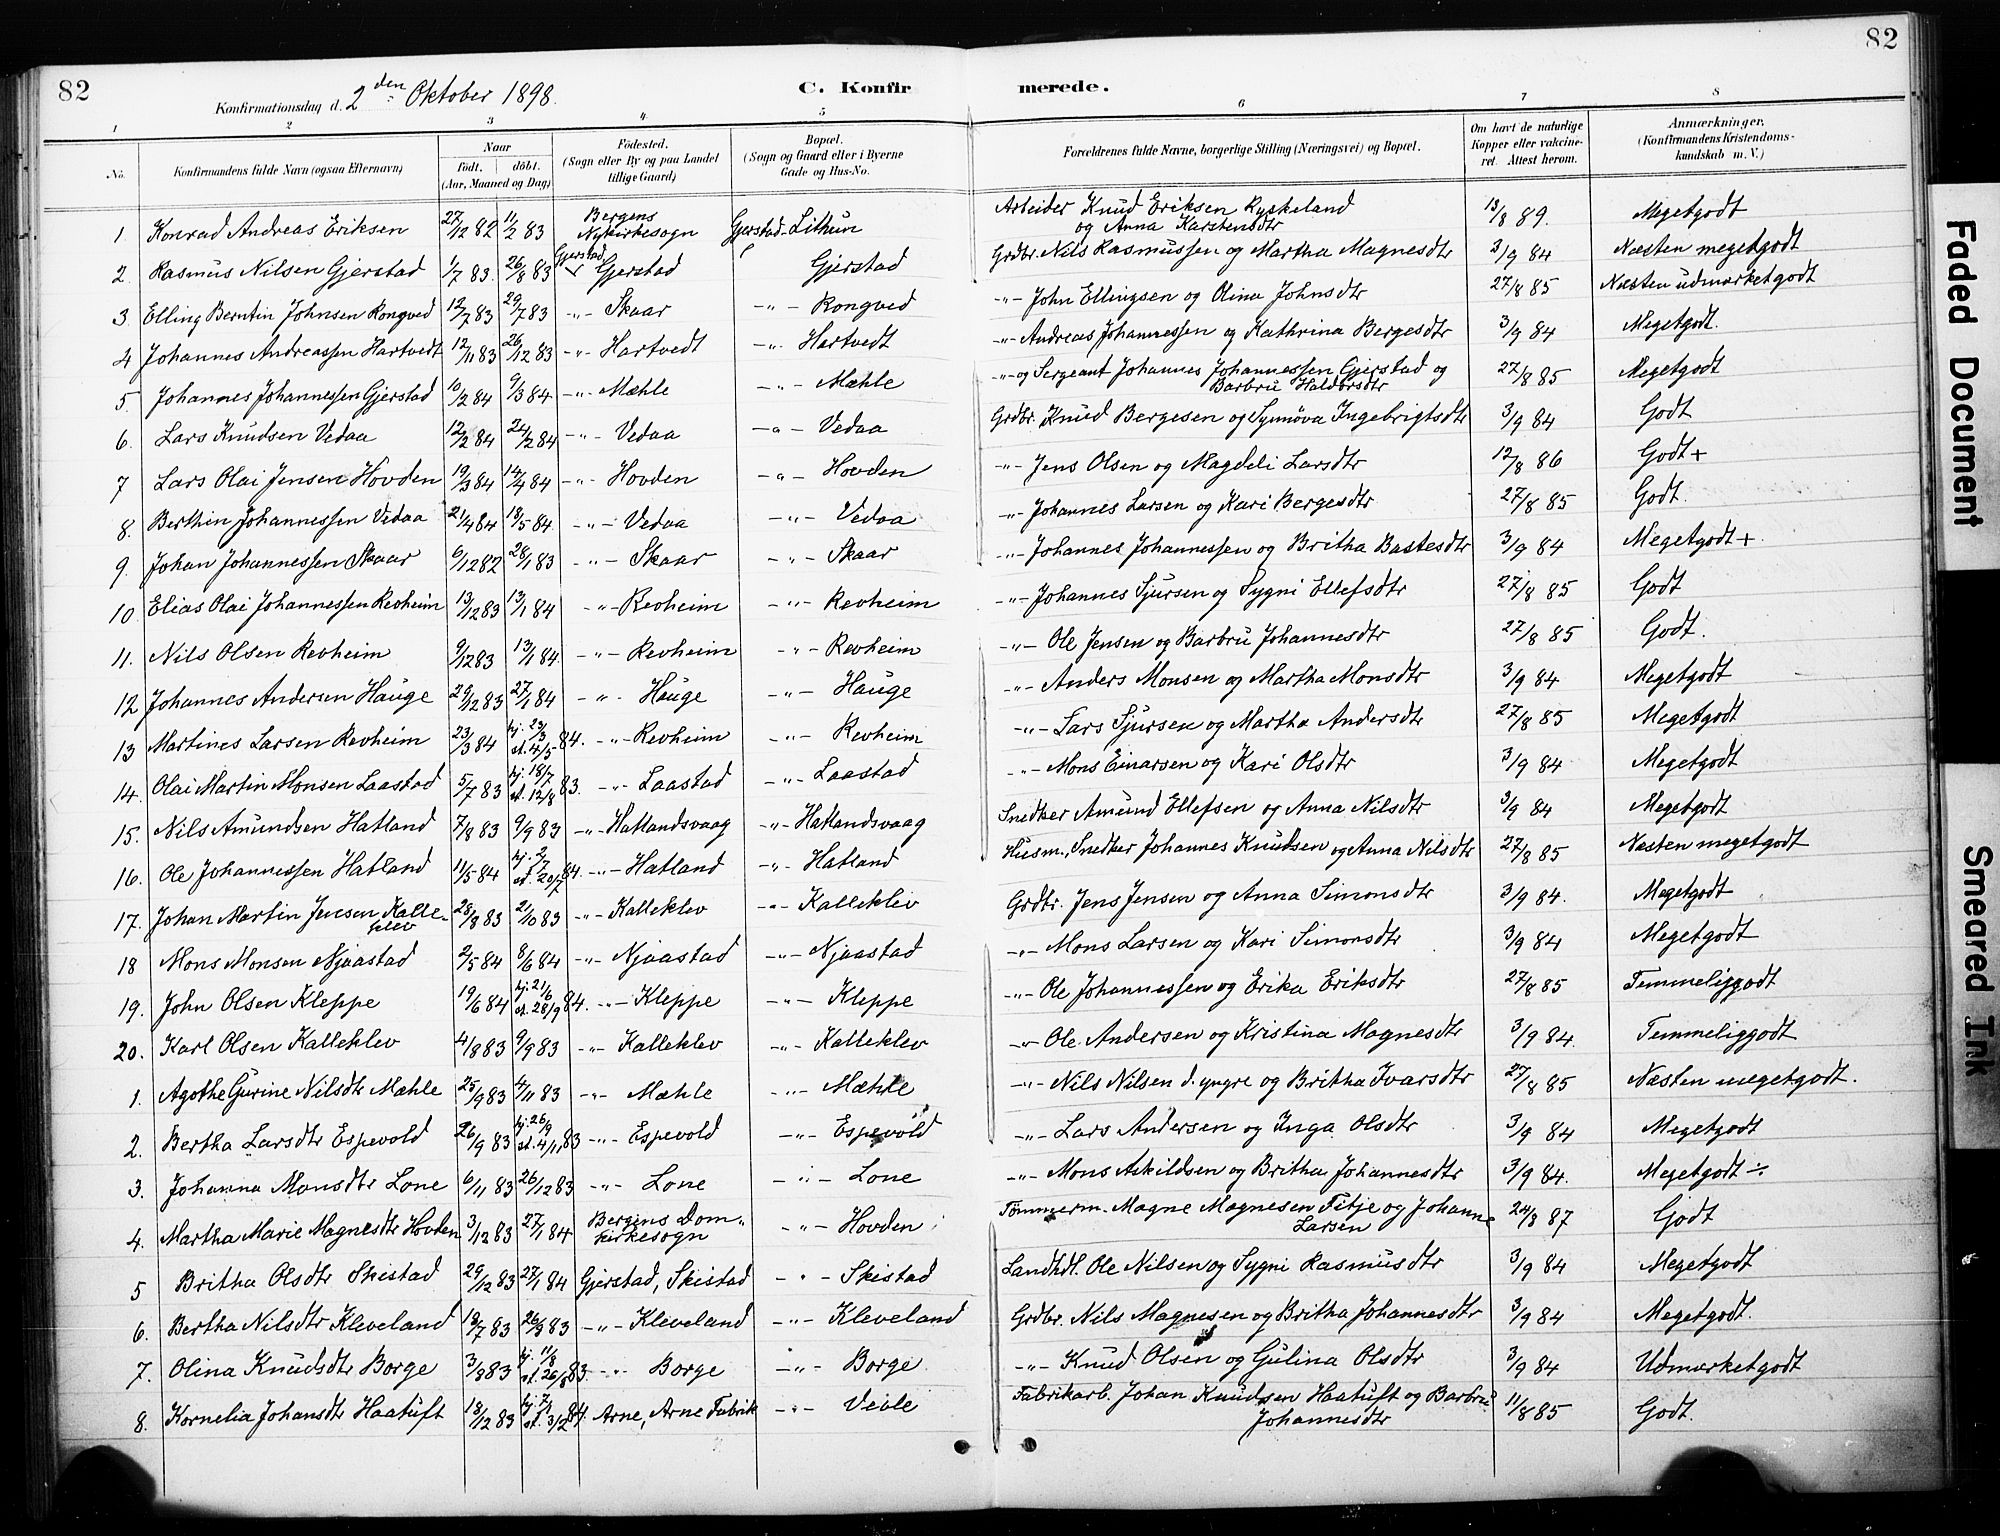 82
82
Konfirmationsdag d. 2den Oktober 1898.
C. Konfirmerede.
1 2 3 4 5 6 7 8
No. Konfirmandens fulde Navn (ogsaa Efternavn) Naar født. døbt. (Aar, Maaned og Dag) Fødested. (Sogn eller By og paa Landet tillige Gaard) Bopæl. (Sogn og Gaard eller i Byerne Gade og Hus-No. Forældrenes fulde Navne, borgerlige Stilling (Næringsvei) og Bopæl. Om havt de naturlige Kopper eller vakcineret. Attest herom. Anmærkninger. (Konfirmandens Kristendomskundskab m. V.)
1. Konrad Andreas Eriksen 27/12 82 11/2 83 Bergens Nykirkesogn Gjerstad-Lithun Arbeider Knud Eriksen Ryskeland og Anna Karstensdtr 13/8 89. Megetgodt
2. Rasmus Nilsen Gjerstad 1/7 83. 26/8 83 Gjerstad Gjerstad Gjerstad Grdbr. Nils Rasmussen og Martha Magnesdtr 3/9 84 Næsten megetgodt
3. Elling Berntin Johnsen Rongved 12/7 83 29/7 83 -"- Skaar -"- Rongved -"- John Ellingsen og Olina Johnsdtr 27/8 85 Næsten udmærketgodt
4 Johannes Andreassen Hartvedt 12/11 83 26/12 83 -"- Hartvedt -"- Hartvedt -"- Andreas Johannessen og Kathrina Bergesdtr 3/9 84 Megetgodt.
5. Johannes Johannessen Gjerstad 10/2 84 9/3 84 -"- Mæhle -"- Mæhle -"- og Sergeant Johannes Johannessen Gjerstad og Barbru Haldorsdtr 27/8 85 Megetgodt
6. Lars Knudsen Vedaa 12/2 84 24/2 84 -"- Vedaa -"- Vedaa Grdbr. Knud Bergesen og Synnöva Ingebrigtsdtr 3/9 84 Godt
7 Lars Olai Jensen Hovden 19/3 84 14/4 84 -"- Hovden -"- Hovden -"- Jens Olsen og Magdeli Larsdtr 12/8 86 Godt+
8. Berthin Johannessen Vedaa 21/4 84 18/5 84. -"- Vedaa -"- Vedaa -"- Johannes Larsen og Kari Bergesdtr 27/8 85 Godt.
9. Johan Johannessen Skaar 6/12 82 28/1 83 -"- Skaar -"- Skaar -"- Johannes Johannessen og Britha Bastesdtr 3/9 84 Megetgodt+.
10 Elias Olai Johannessen Revheim 13/12 83 13/1 84 -"- Revheim -"- Revheim -"- Johannes Sjursen og Sygni Ellefsdtr 27/8 85 Godt
11. Nils Olsen Revheim 9/12 83 13/1 84. -"- Revheim -"- Revheim -"- Ole Jensen og Barbru Johannesdtr 27/8 85 Godt.
12 Johannes Andersen Hauge 29/12 83 27/1 84 -"- Hauge -"- Hauge -"- Anders Monsen og Martha Monsdtr 3/9 84 Megetgodt
13 Martines Larsen Revheim 23/3 84 hj. 23/3 st. 4/5 84. -"- Revheim -"- Revheim -"- Lars Sjursen og Martha Andersdtr 27/8 85 Megetgodt
14. Olai Martin Monsen Laastad 5/7 83 hj. 18/7 st. 12/8 83. -"- Laastad -"- Laastad -"- Mons Einarsen og Kari Olsdtr 3/9 84 Megetgodt
15. Nils Amundsen Hatland 7/8 83 9/9 83 -"- Hatlandsvaag -"- Hatlandsvaag Snedker Amund Ellefsen og Anna Nilsdtr 3/9 84 Megetgodt
16. Ole Johannessen Hatland 11/5 84 hj. 2/7 st. 20/7 84. -"- Hatland -"- Hatland Husm., Snedker Johannes Knudsen og Anna Nilsdtr 27/8 85 Næsten megetgodt
17. Johan Martin Jensen Kalleklev 28/8 83 21/10 83 -"- Kalleklev -"- Kalleklev Grdbr. Jens Jensen og Anna Simonsdtr 3/9 84. Megetgodt
18 Mons Monsen Njaastad 2/5 84 8/6 84 -"- Njaastad -"- Njaastad -"- Mons Larsen og Kari Simonsdtr 3/9 84 Megetgodt
19. John Olsen Kleppe 19/6 84 hj. 21/6 st. 28/9 84. -"- Kleppe -"- Kleppe -"- Ole Johannessen og Erika Eriksdtr 27/8 85 Temmeliggodt
20. Karl Olsen Kalleklev 4/8 83 9/9 83 -"- Kalleklev -"- Kalleklev -"- Ole Andersen og Kristina Magnesdtr 3/9 84. Temmeliggodt
1. Agothe Gurine Nilsdtr Mæhle 25/9 83 4/11 83 -"- Mæhle -"- Mæhle -"- Nils Nilsen d. yngre og Britha Ivarsdtr 27/8 85 Næsten megetgodt.
2. Bertha Larsdtr Espevold 26/9 83 hj. 26/9 st. 4/11 83 -"- Espevold -"- Espevold -"- Lars Andersen og Inga Olsdtr 3/9 84 Megetgodt
3. Johanna Monsdtr Lone 6/11 83 26/12 83 -"- Lone -"- Lone -"- Mons Askildsen og Britha Johannesdtr 3/9 84. Megetgodt÷
4. Martha Marie Magnesdtr Hovden 3/12 83 27/1 84 Bergens Domkirkesogn -"- Hovden Tömmerm. Magne Magnesen Fitje og Johanne Larsen 24/8 87 Godt
5 Britha Olsdtr Skistad 29/12 83 27/1 84 Gjerstad, Skistad -"- Skistad Landhdl. Ole Nilsen og Sygni Rasmusdtr 3/9 84 Megetgodt
6. Bertha Nilsdtr Kleveland 18/7 83 26/8 83 -"- Kleveland -"- Kleveland Grdbr. Nils Magnesen og Britha Johannesdtr 3/9 84 Megetgodt.
7. Olina Knudsdtr Borge 3/8 83 hj. 11/8 st. 26/8 83 -"- Borge -"- Borge -"- Knud Olsen og Gulina Olsdtr 3/9 84 Udmærketgodt
8. Kornelia Johansdtr Haatuft 18/12 83 hj. 7/1 st. 3/2 84. Arne, Arne Fabrik -"- Vevle Fabrikarb. Johan Knudsen Haatuft og Barbru Johannesdtr 11/8 85 Godt.
Faded Document
Smeared Ink